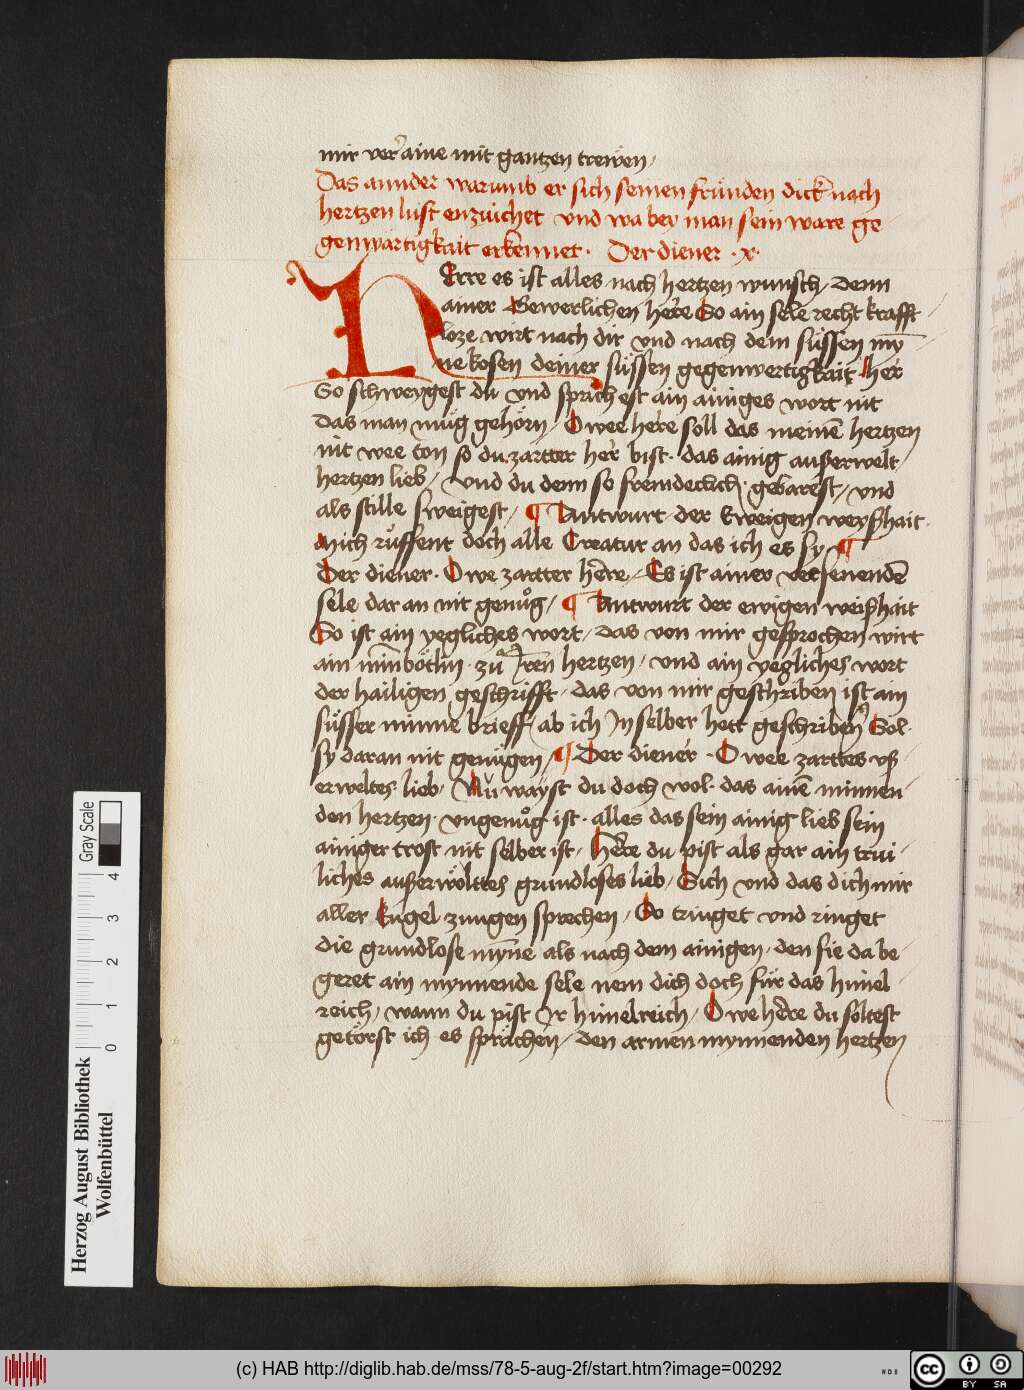 mir ver aine mit gantzen trewen /
Das annder warumb er sich seinen fründen dick nach
hertzen lust enzuichet vnd wa bey man sein ware ge
genwärtigkait erkennet · Der diener · x ·
HErre es ist alles nach hertzen wunsch / denn
ainer Bewerlichen here So ain sele recht krafft
loze wirt nach dir vnd nach dem süssen my
nekosen deiner süssen gegenwertigkait her
So schweygest du vnd sprichest ain ainiges wort nit
das man müg gehörn / Owee here soll das meinē hertzen
nit wee ton so du zartter her bist · das ainig außerwelt
hertzen lieb / vnd du denn so fremdeclich · gebarest / vnd
als stille sweigest / ¶ Antwurt · der Eweigen weyßhait ·
Mich rüffent doch alle Creatur an das ich es sy ¶
Der diener · Owe zartter here / Es ist ainer versenendē
sele dar an nit genůg / ¶ Antwurt der ewigen weißhait
So ist ain yegliches wort / das von mir gesprochen wirt
ain minbötlin · zů Iren hertzen / vnd ain yegliches wort
der hailigen geschrifft / das von mir geschriben ist ain
süsser minne brieff / ab ich In selber hett geschriben Sol ·
sy daran nit genügen / ¶ Der diener · Owee zarttes vß
erweltes lieb / Nů wayst du doch wol · das ainē minnen
den hertzen · vngenůg ist · alles das sein ainig lieb sein
ainiger trost nit selber ist / Here du pist als gar ain trui
liches außerwöltes grundloses lieb / Sich vnd das dich mir
aller Engel zungen sprechen / So tringet vnd ringet
die grundlose myne als nach dem ainigen / den sie da be
geret ain mynnende sele nem dich doch für das himel
reich / wann du pist Ir himelreich / Owe here du soltest
getörst ich es sprächen / den armen mynnenden hertzen
Herzog August Bibliothek
Wolfenbüttel
0 1 2 3 4
Gray Scale
(c) HAB http://diglib.hab.de/mss/78-5-aug-2f/start.htm?image=00292
WDB
cc BY SA